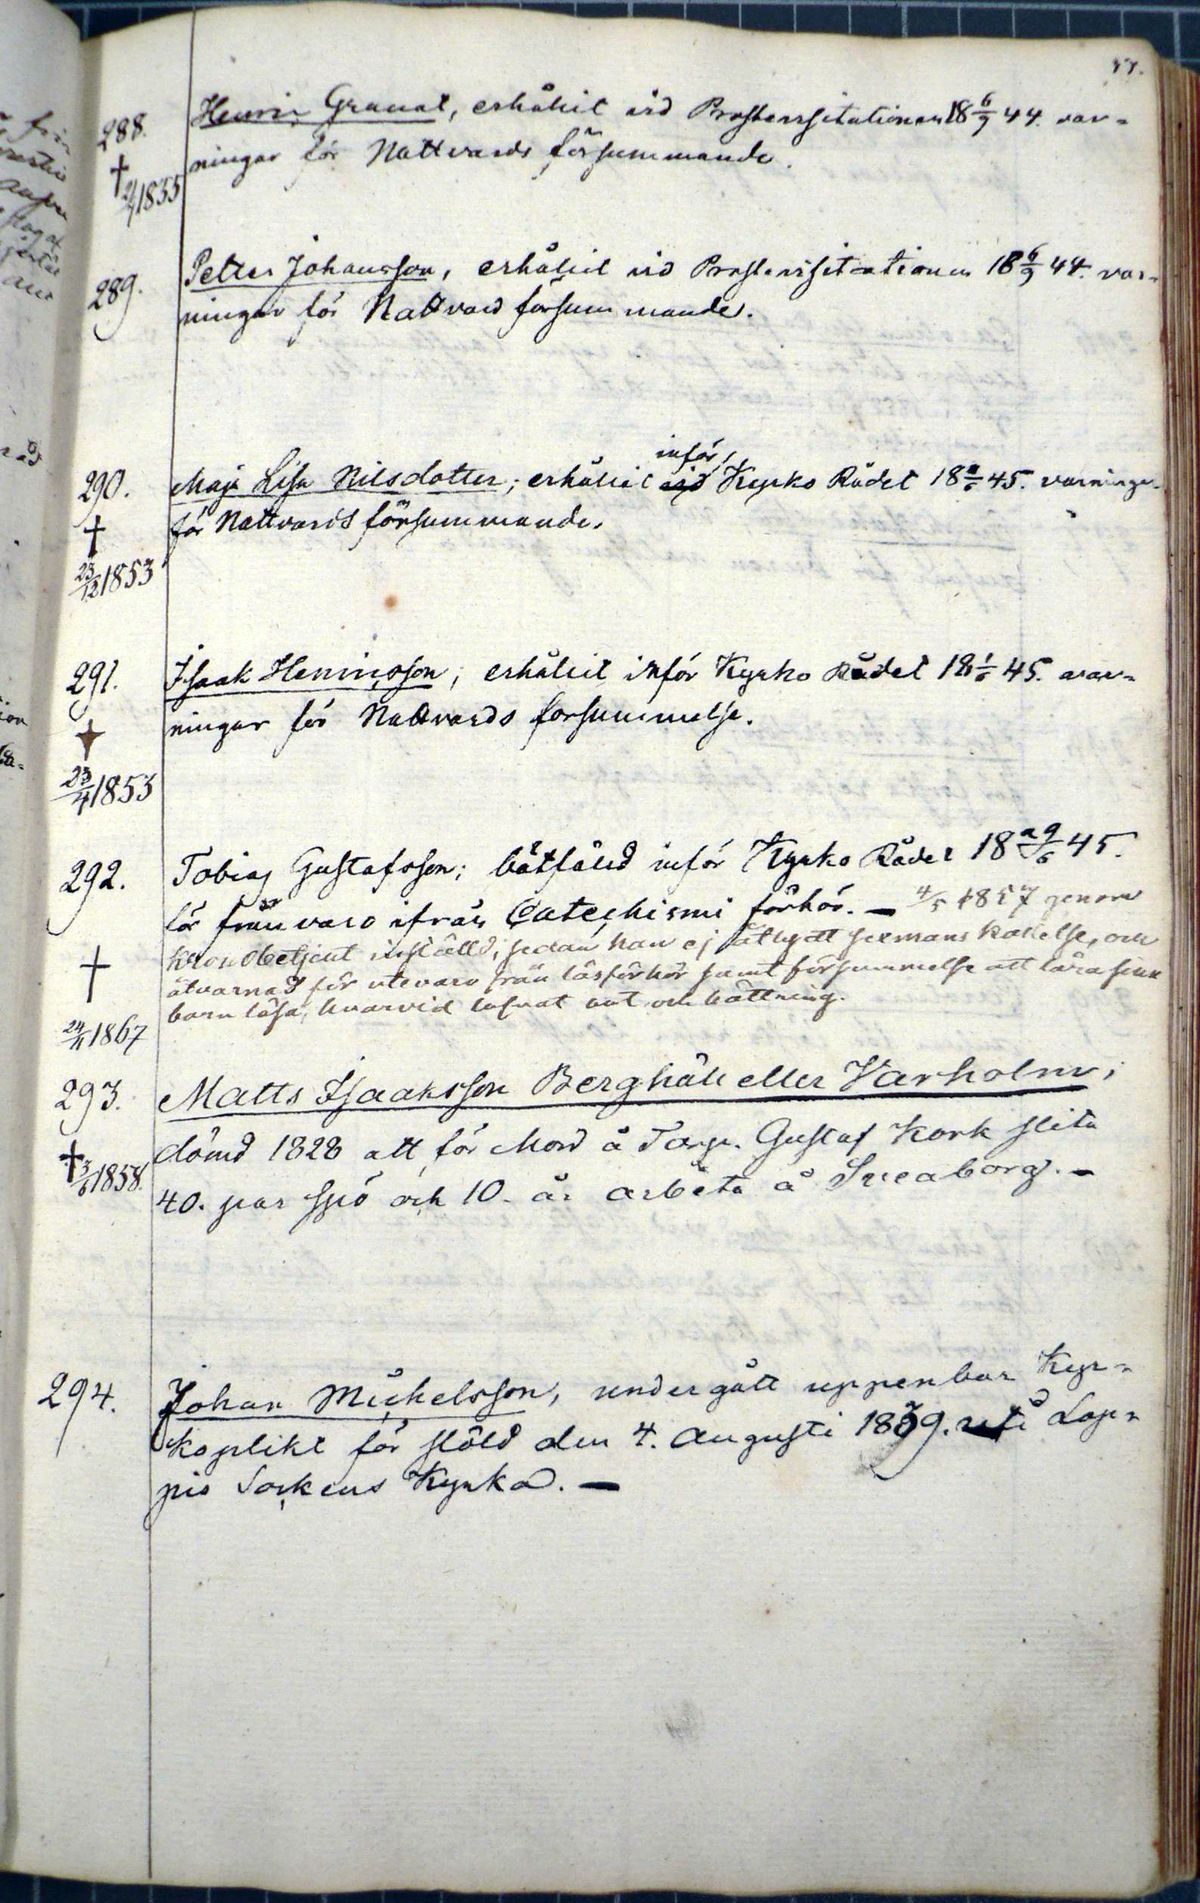 77.
288. Henric Granat, erhållit vid Prostevisitationen 18 6/9 44. var-
† 1835 ningar för Nattvards försummande.
289. Petter Johansson, erhållit vid Prostevisitationen 18 6/9 44. var-
ningar för Nattvard försummande.
inför,
290. Maja Lisa Nilsdotter; erhållit vid Kyrko Rådet 18 45. varningar
† för Nattvards försummande.
23/12 1853
291. Isaak Henricsson, erhållit inför Kyrko Rådet 18 1/6 45. var-
ningar för Nattvards försummelse.
23/4 1853
292. Tobias Gustafsson; bötfälld inför Kyrko Rådet 18 45.
för frånvaro ifrån Catechismi förhör. — 4/5 1857 genom
kronobetjent inställd, sedan han ej åtlydt sexmans kallelse, och
† åtvarnad för utevaro från läsförhör samt försummelse att lära sina
barn läsa, hvarvid lofvat bot och bättring.
24/11 1867
293. Matts Isaaksson Berghäll eller Varholm;
dömd 1828 att för Mord å Torp. Gustaf Kork slita
† 3/6 1858. 40. par spö och 10. år arbeta å Sveaborg. —
294. Johan Michelsson, undergått uppenbar Kyr-
koplikt för stöld den 4. Augusti 1839. i Lop-
pis Sockens Kyrka. —